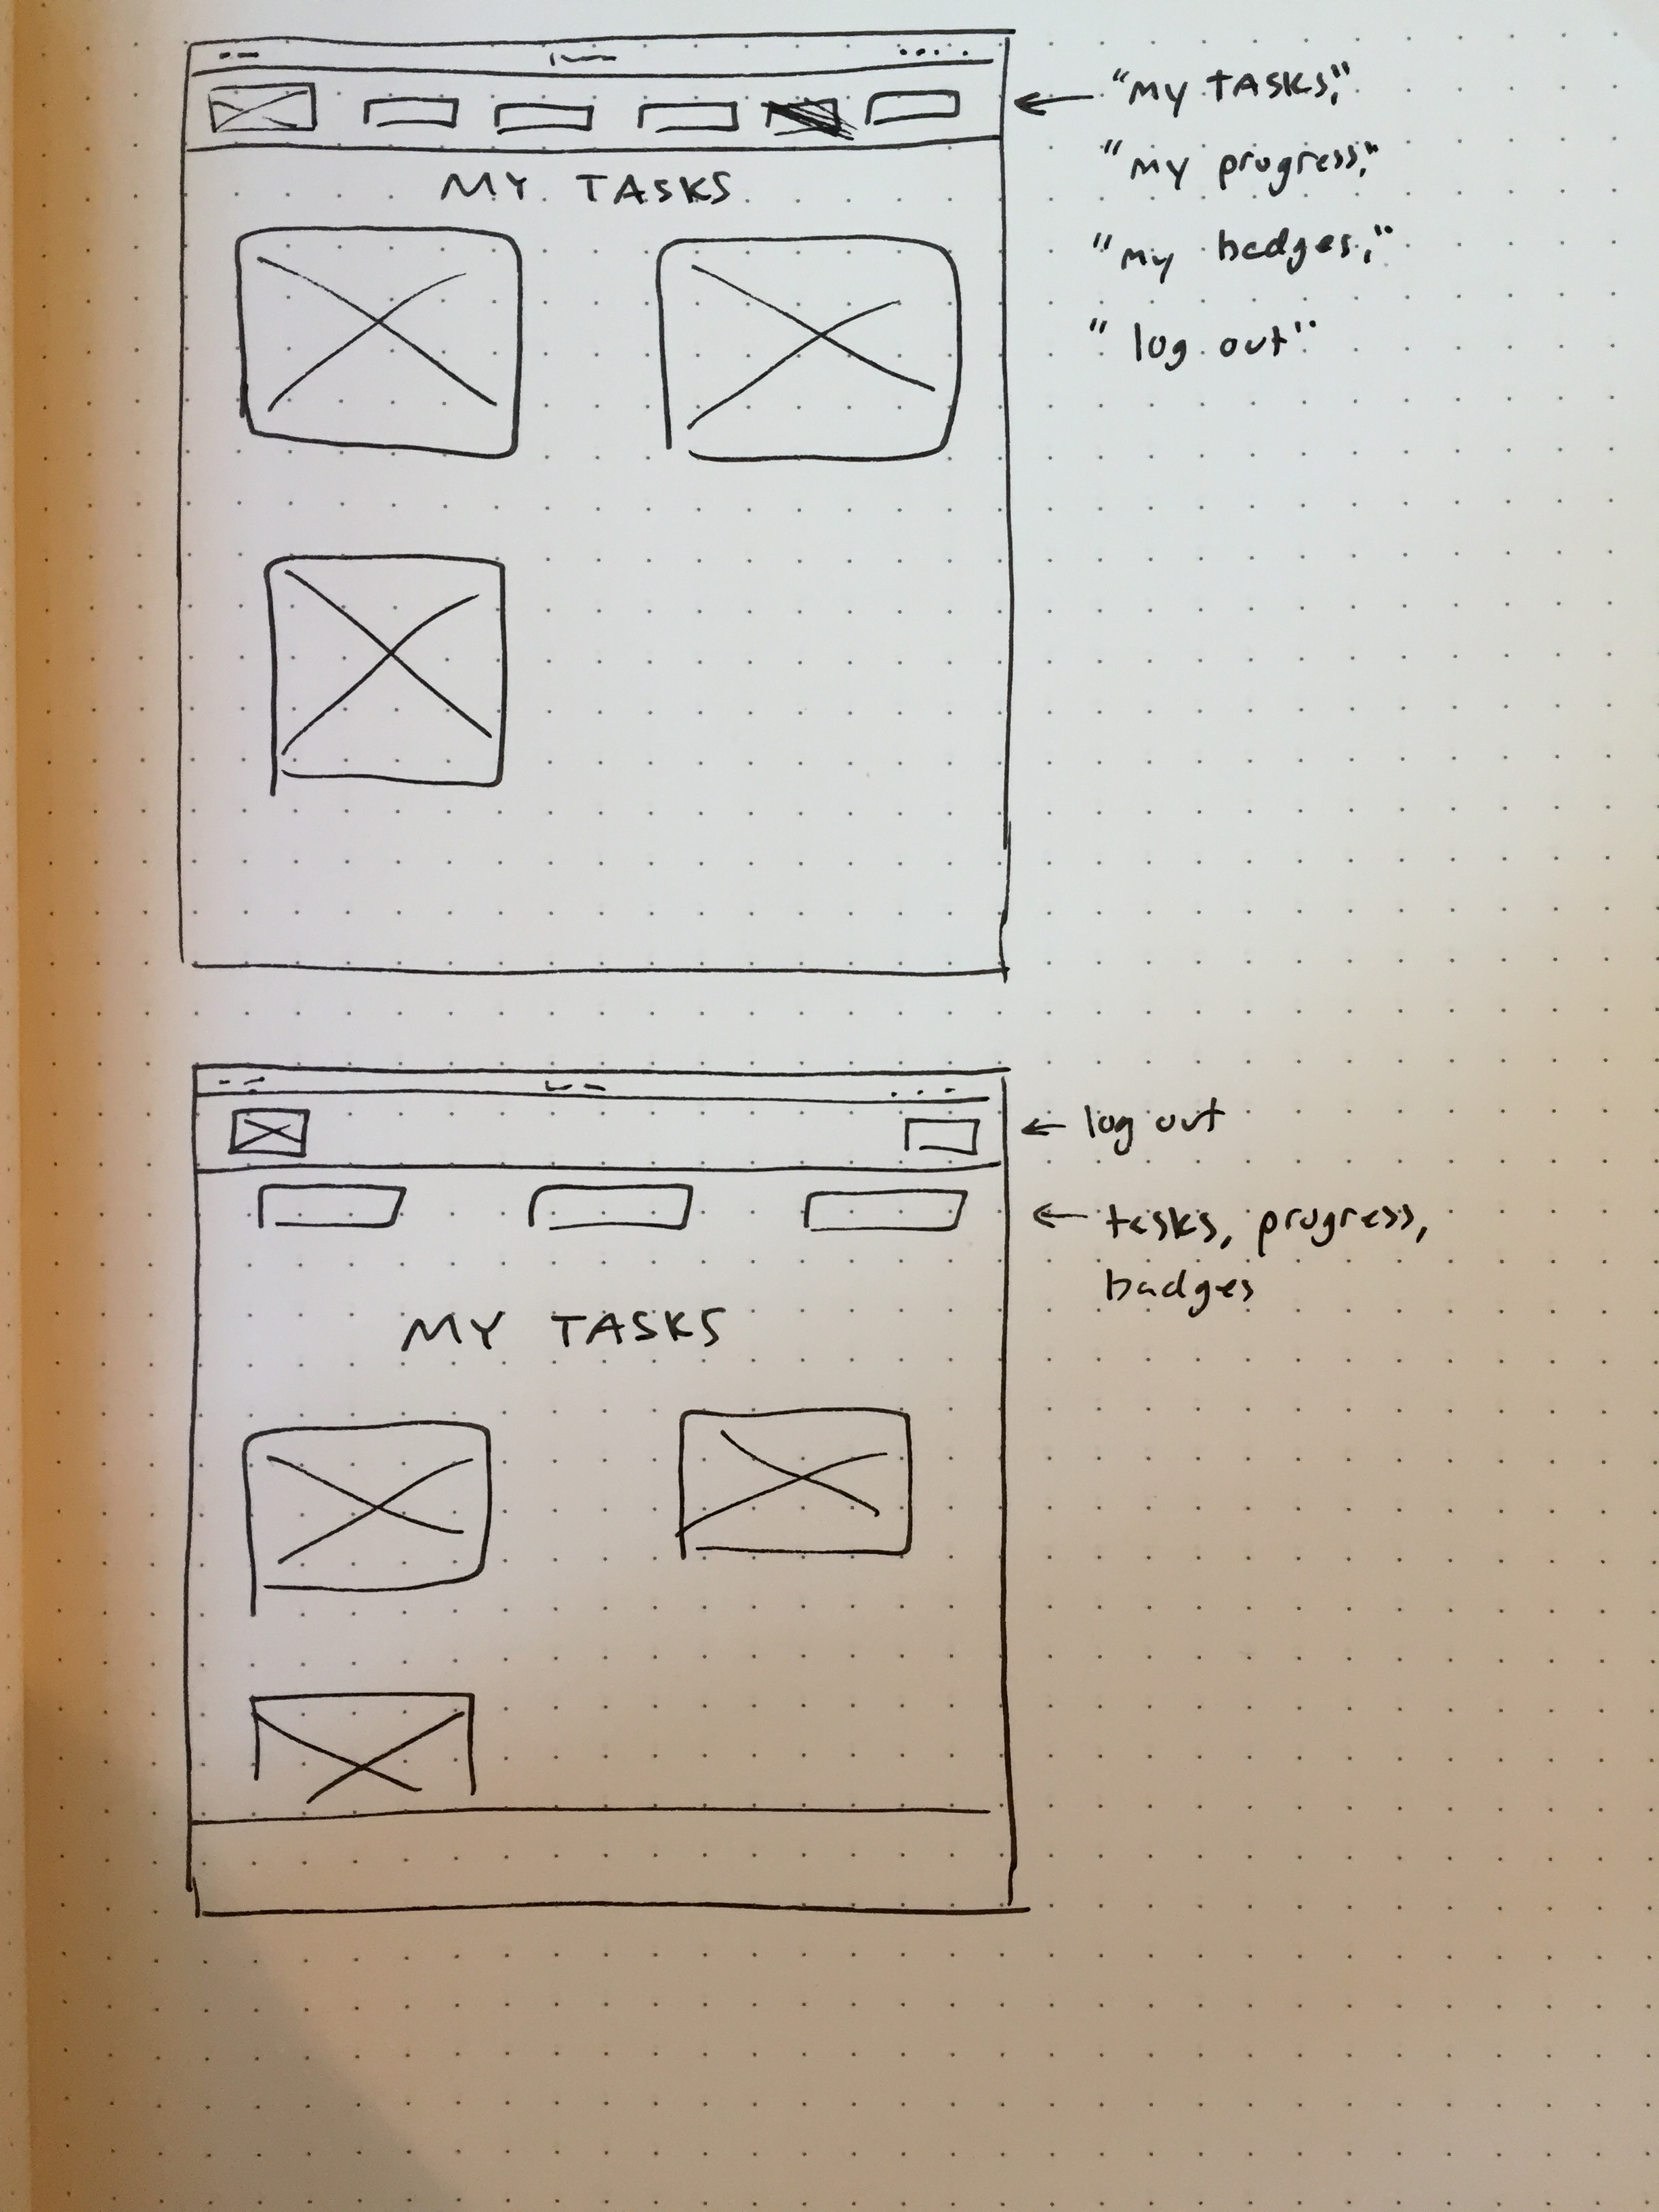 "My TASKS,"
"my progress,"
"my badges,"
"log out"
MY TASKS
log out
tasks, progress,
badges
MY TASKS